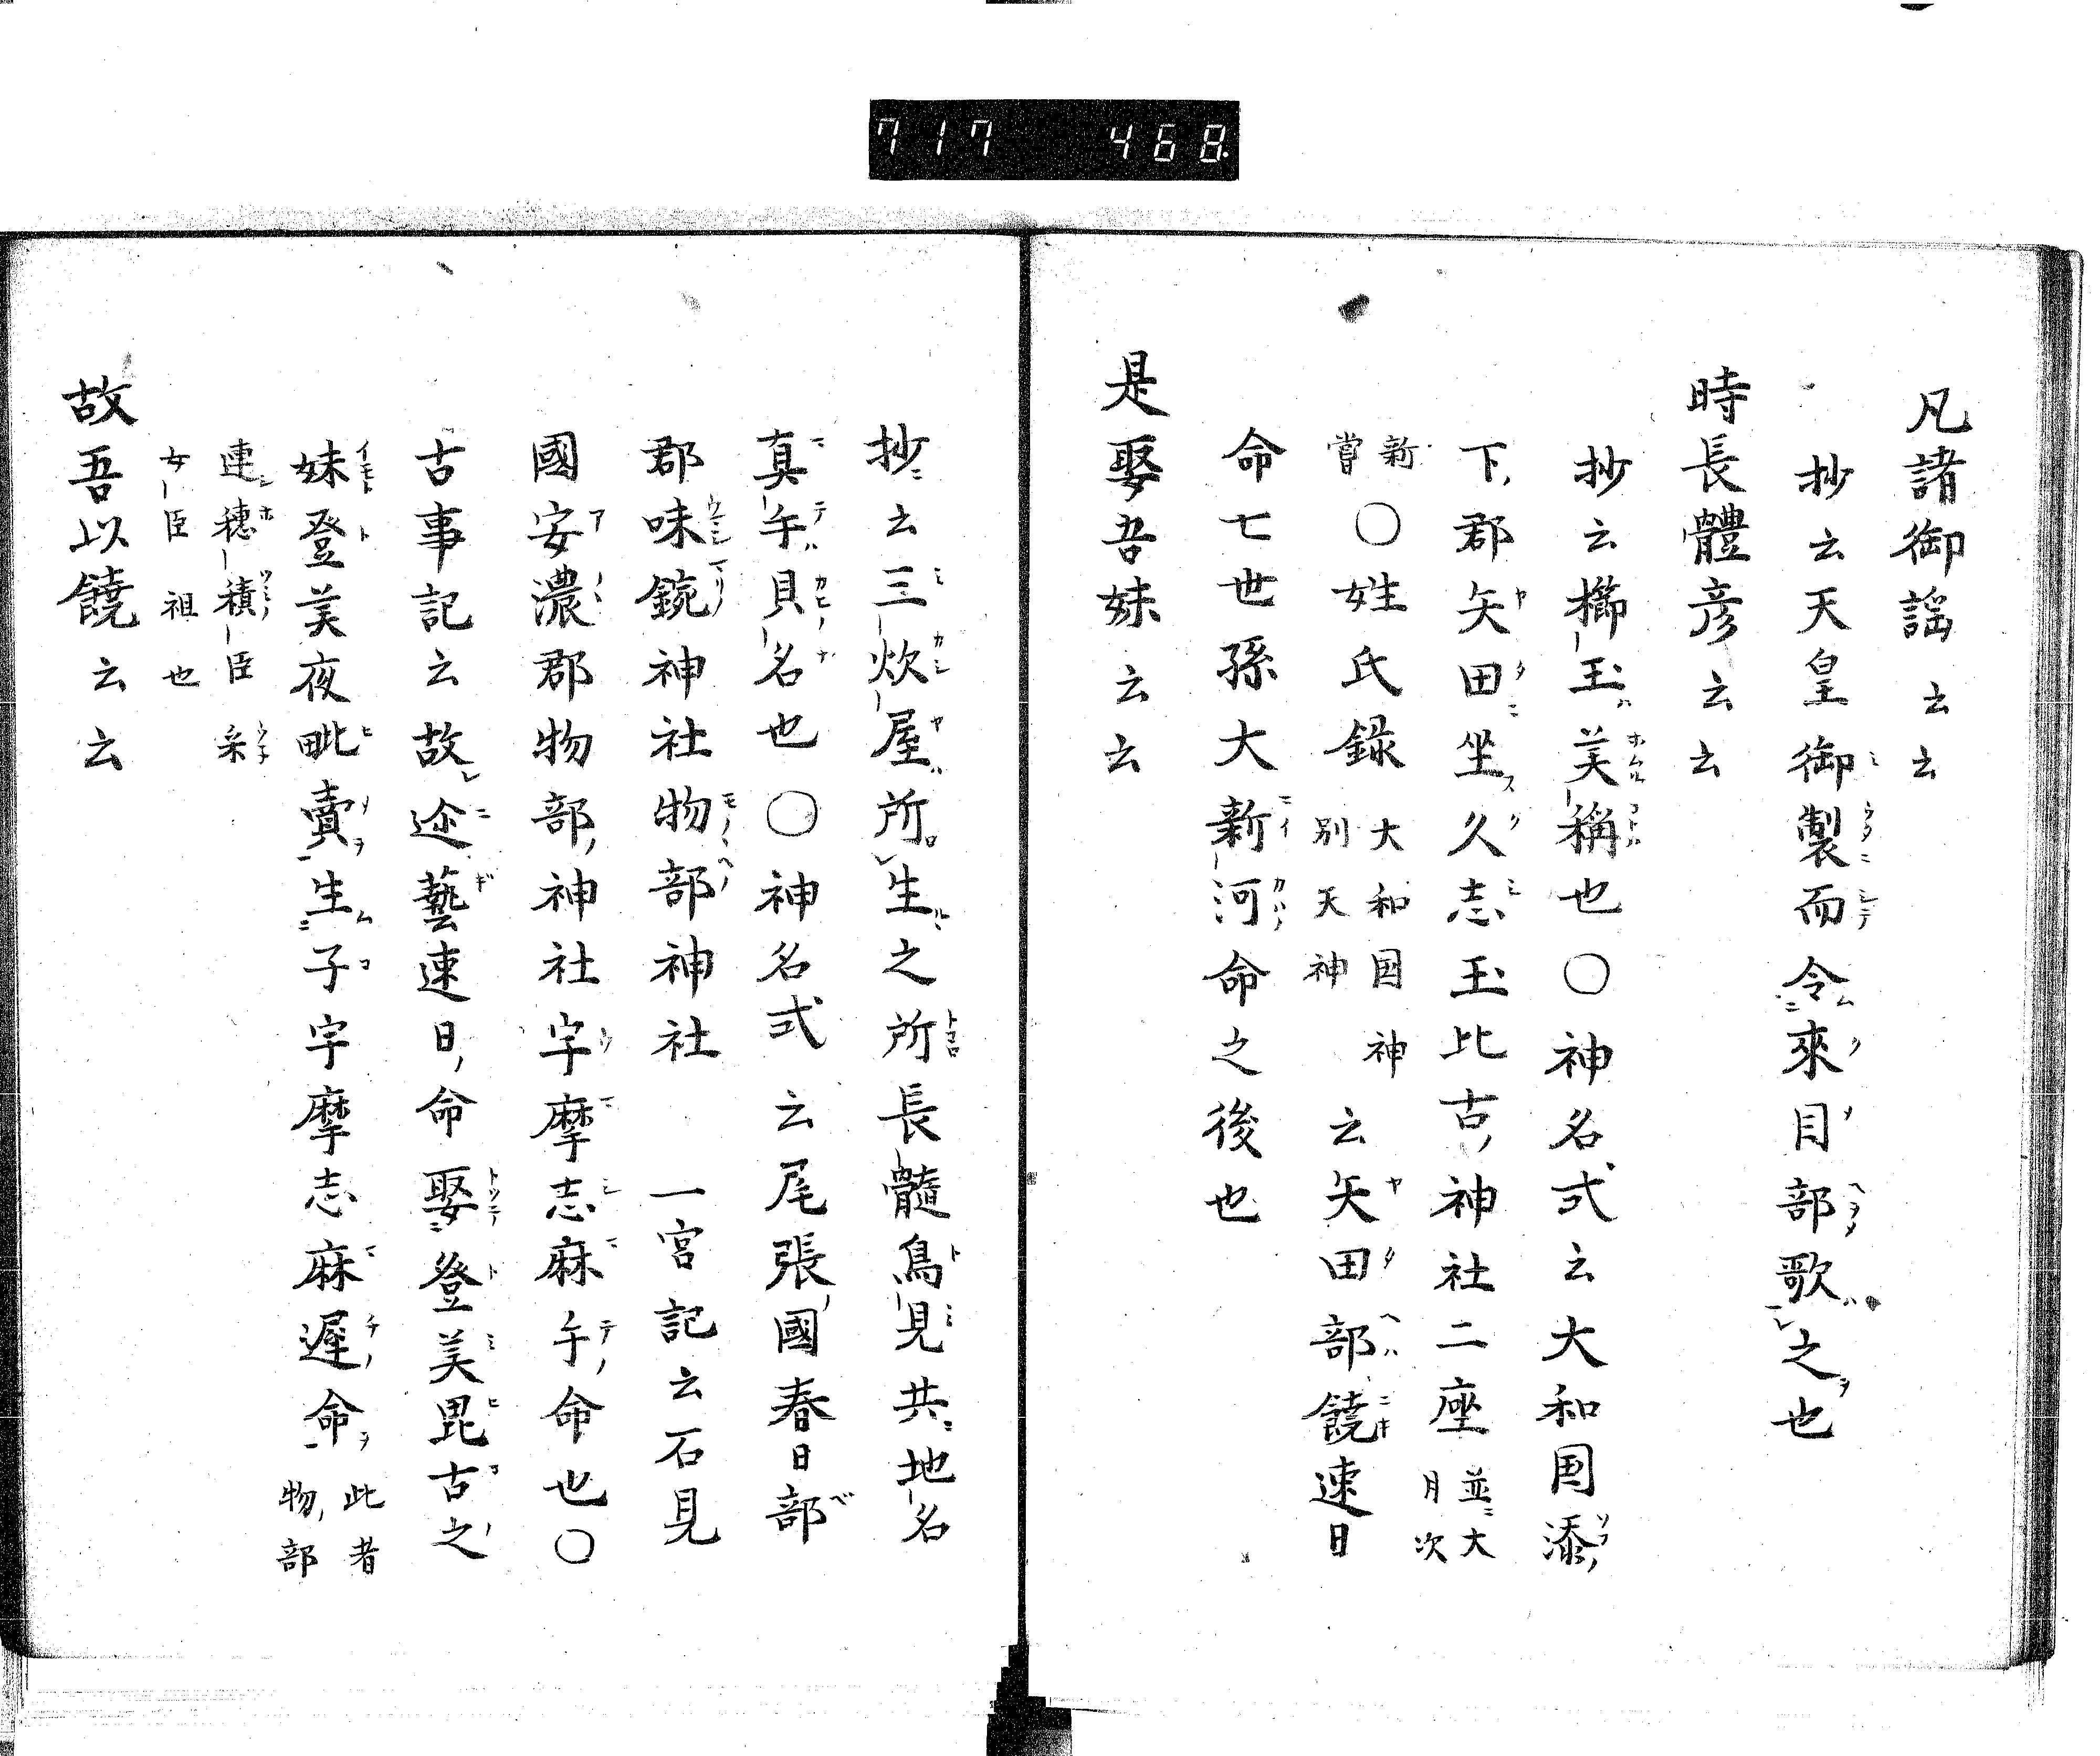 717 468
凡諸御謡云云
抄云天皇御製而令來目部歌之也
時長體彦云云
抄云櫛玉美稱也〇神名式云大和国添
下郡矢田坐久志玉比古神社二座並大月次
新嘗〇姓氏録大和国神別天神云矢田部饒速日
命七世孫大新河命之後也
是娶吾妹云云
抄云三炊屋所生之所長髓鳥見共地名
真午貝名也〇神名式云尾張國春日部
郡味鋺神社物部神社 一宮記云石見
國安濃郡物部神社宇摩志麻午命也〇
古事記云故迩藝速日命娶登美毘古之
妹登美夜毗賣生子宇摩志麻遲命此者物部
連穂積臣采女臣祖也
故吾以饒云云